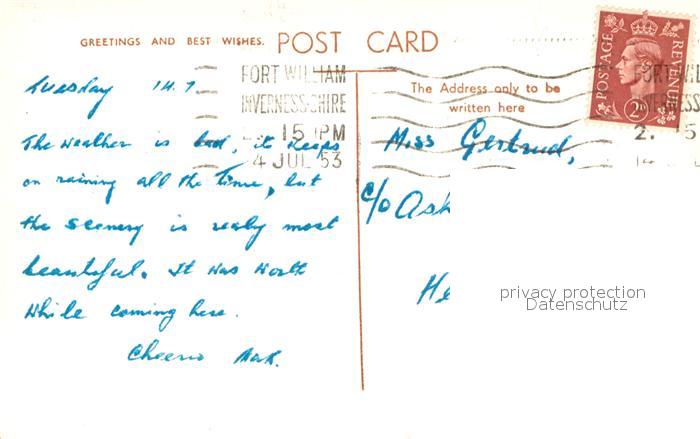 GREETINGS AND BEST WISHES. POST CARD
POSTAGE REVENUE
2D
FORT WILLIAM
INVERNESS-SHIRE
2. 15 PM
14 JUL 53
The Address only to be
written here
Tuesday 14.7
The weather is bad, it keeps
on raining all the time, but
the scenery is really most
beautiful. It was worth
while coming here.
Cheerio
Miss Gertrud,
c/o Ash
He
FORT WIL
INVERNESS
2. 15
privacy protection
Datenschutz